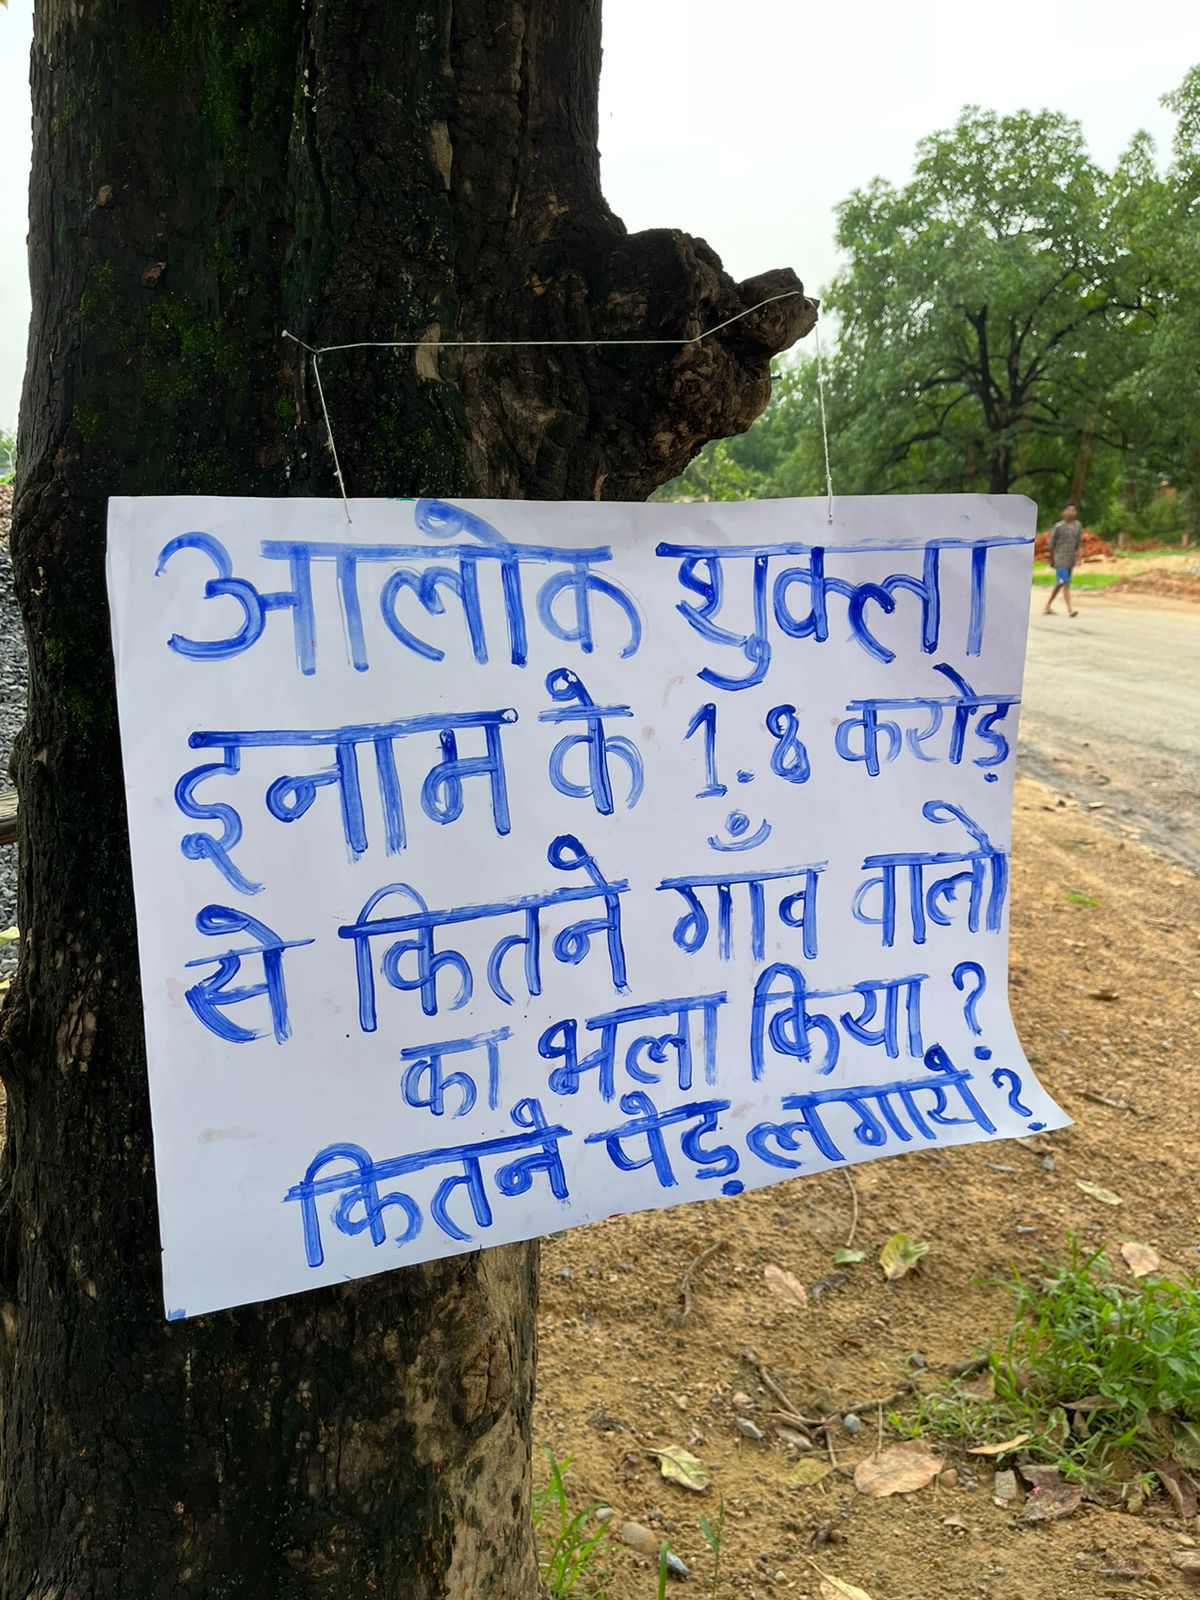 आलोक शुक्ला
इनाम के 1.8 करोड़
से कितने गाँव वालो
का भला किया ?
कितने पेड़ लगाये ?